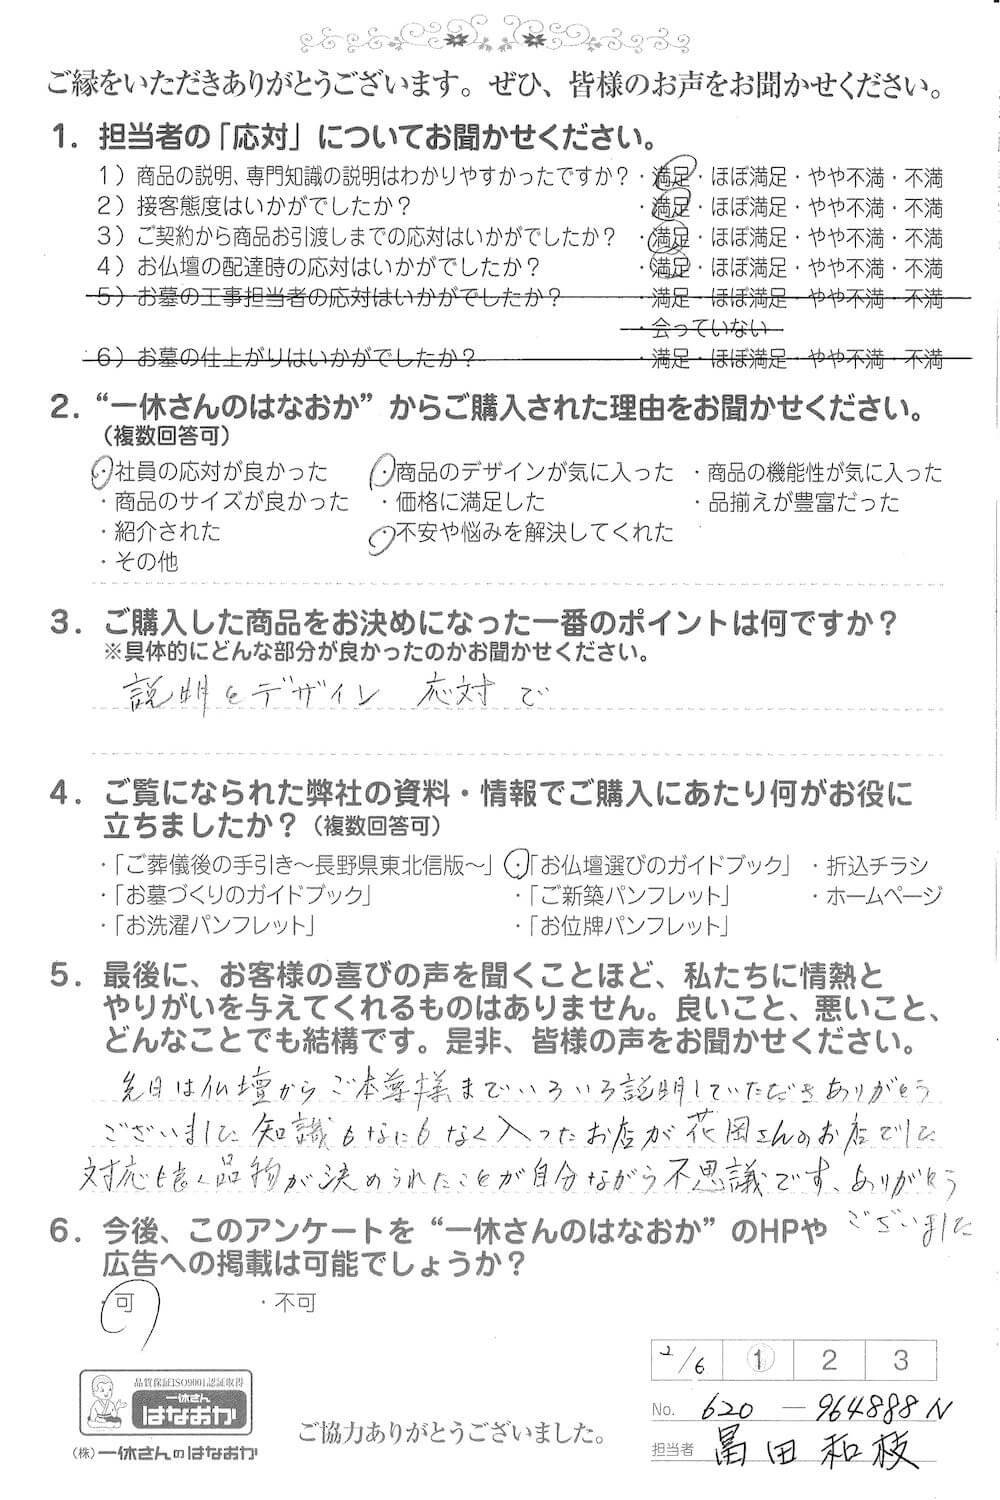 ご縁をいただきありがとうございます。ぜひ、皆様のお声をお聞かせください。
1．担当者の「応対」についてお聞かせください。
1）商品の説明、専門知識の説明はわかりやすかったですか？・満足・ほぼ満足・やや不満・不満
2）接客態度はいかがでしたか？・満足・ほぼ満足・やや不満・不満
3）ご契約から商品お引渡しまでの応対はいかがでしたか？・満足・ほぼ満足・やや不満・不満
4）お仏壇の配達時の応対はいかがでしたか？・満足・ほぼ満足・やや不満・不満
5）お墓の工事担当者の応対はいかがでしたか？・満足・ほぼ満足・やや不満・不満
・会っていない
6）お墓の仕上がりはいかがでしたか？・満足・ほぼ満足・やや不満・不満
2．“一休さんのはなおか”からご購入された理由をお聞かせください。
（複数回答可）
・社員の応対が良かった・商品のデザインが気に入った・商品の機能性が気に入った
・商品のサイズが良かった・価格に満足した・品揃えが豊富だった
・紹介された・不安や悩みを解決してくれた
・その他
3．ご購入した商品をお決めになった一番のポイントは何ですか？
※具体的にどんな部分が良かったのかお聞かせください。
説明とデザイン 応対で
4．ご覧になられた弊社の資料・情報でご購入にあたり何がお役に
立ちましたか？（複数回答可）
・「ご葬儀後の手引き〜長野県東北信版〜」・「お仏壇選びのガイドブック」・折込チラシ
・「お墓づくりのガイドブック」・「ご新築パンフレット」・ホームページ
・「お洗濯パンフレット」・「お位牌パンフレット」
5．最後に、お客様の喜びの声を聞くことほど、私たちに情熱と
やりがいを与えてくれるものはありません。良いこと、悪いこと、
どんなことでも結構です。是非、皆様の声をお聞かせください。
先日は仏壇からご本尊様までいろいろ説明していただきありがとう
ございました 知識もなにもなく入ったお店が花岡さんのお店でした
対応も良く品物が決められたことが自分ながら不思議です、ありがとう
ございました
6．今後、このアンケートを“一休さんのはなおか”のHPや
広告への掲載は可能でしょうか？
・可 ・不可
2/6 1 2 3
品質保証ISO9001認証取得
一休さん
はなおか
（株）一休さんのはなおか
ご協力ありがとうございました。
No. 620-964888N
担当者 冨田和枝